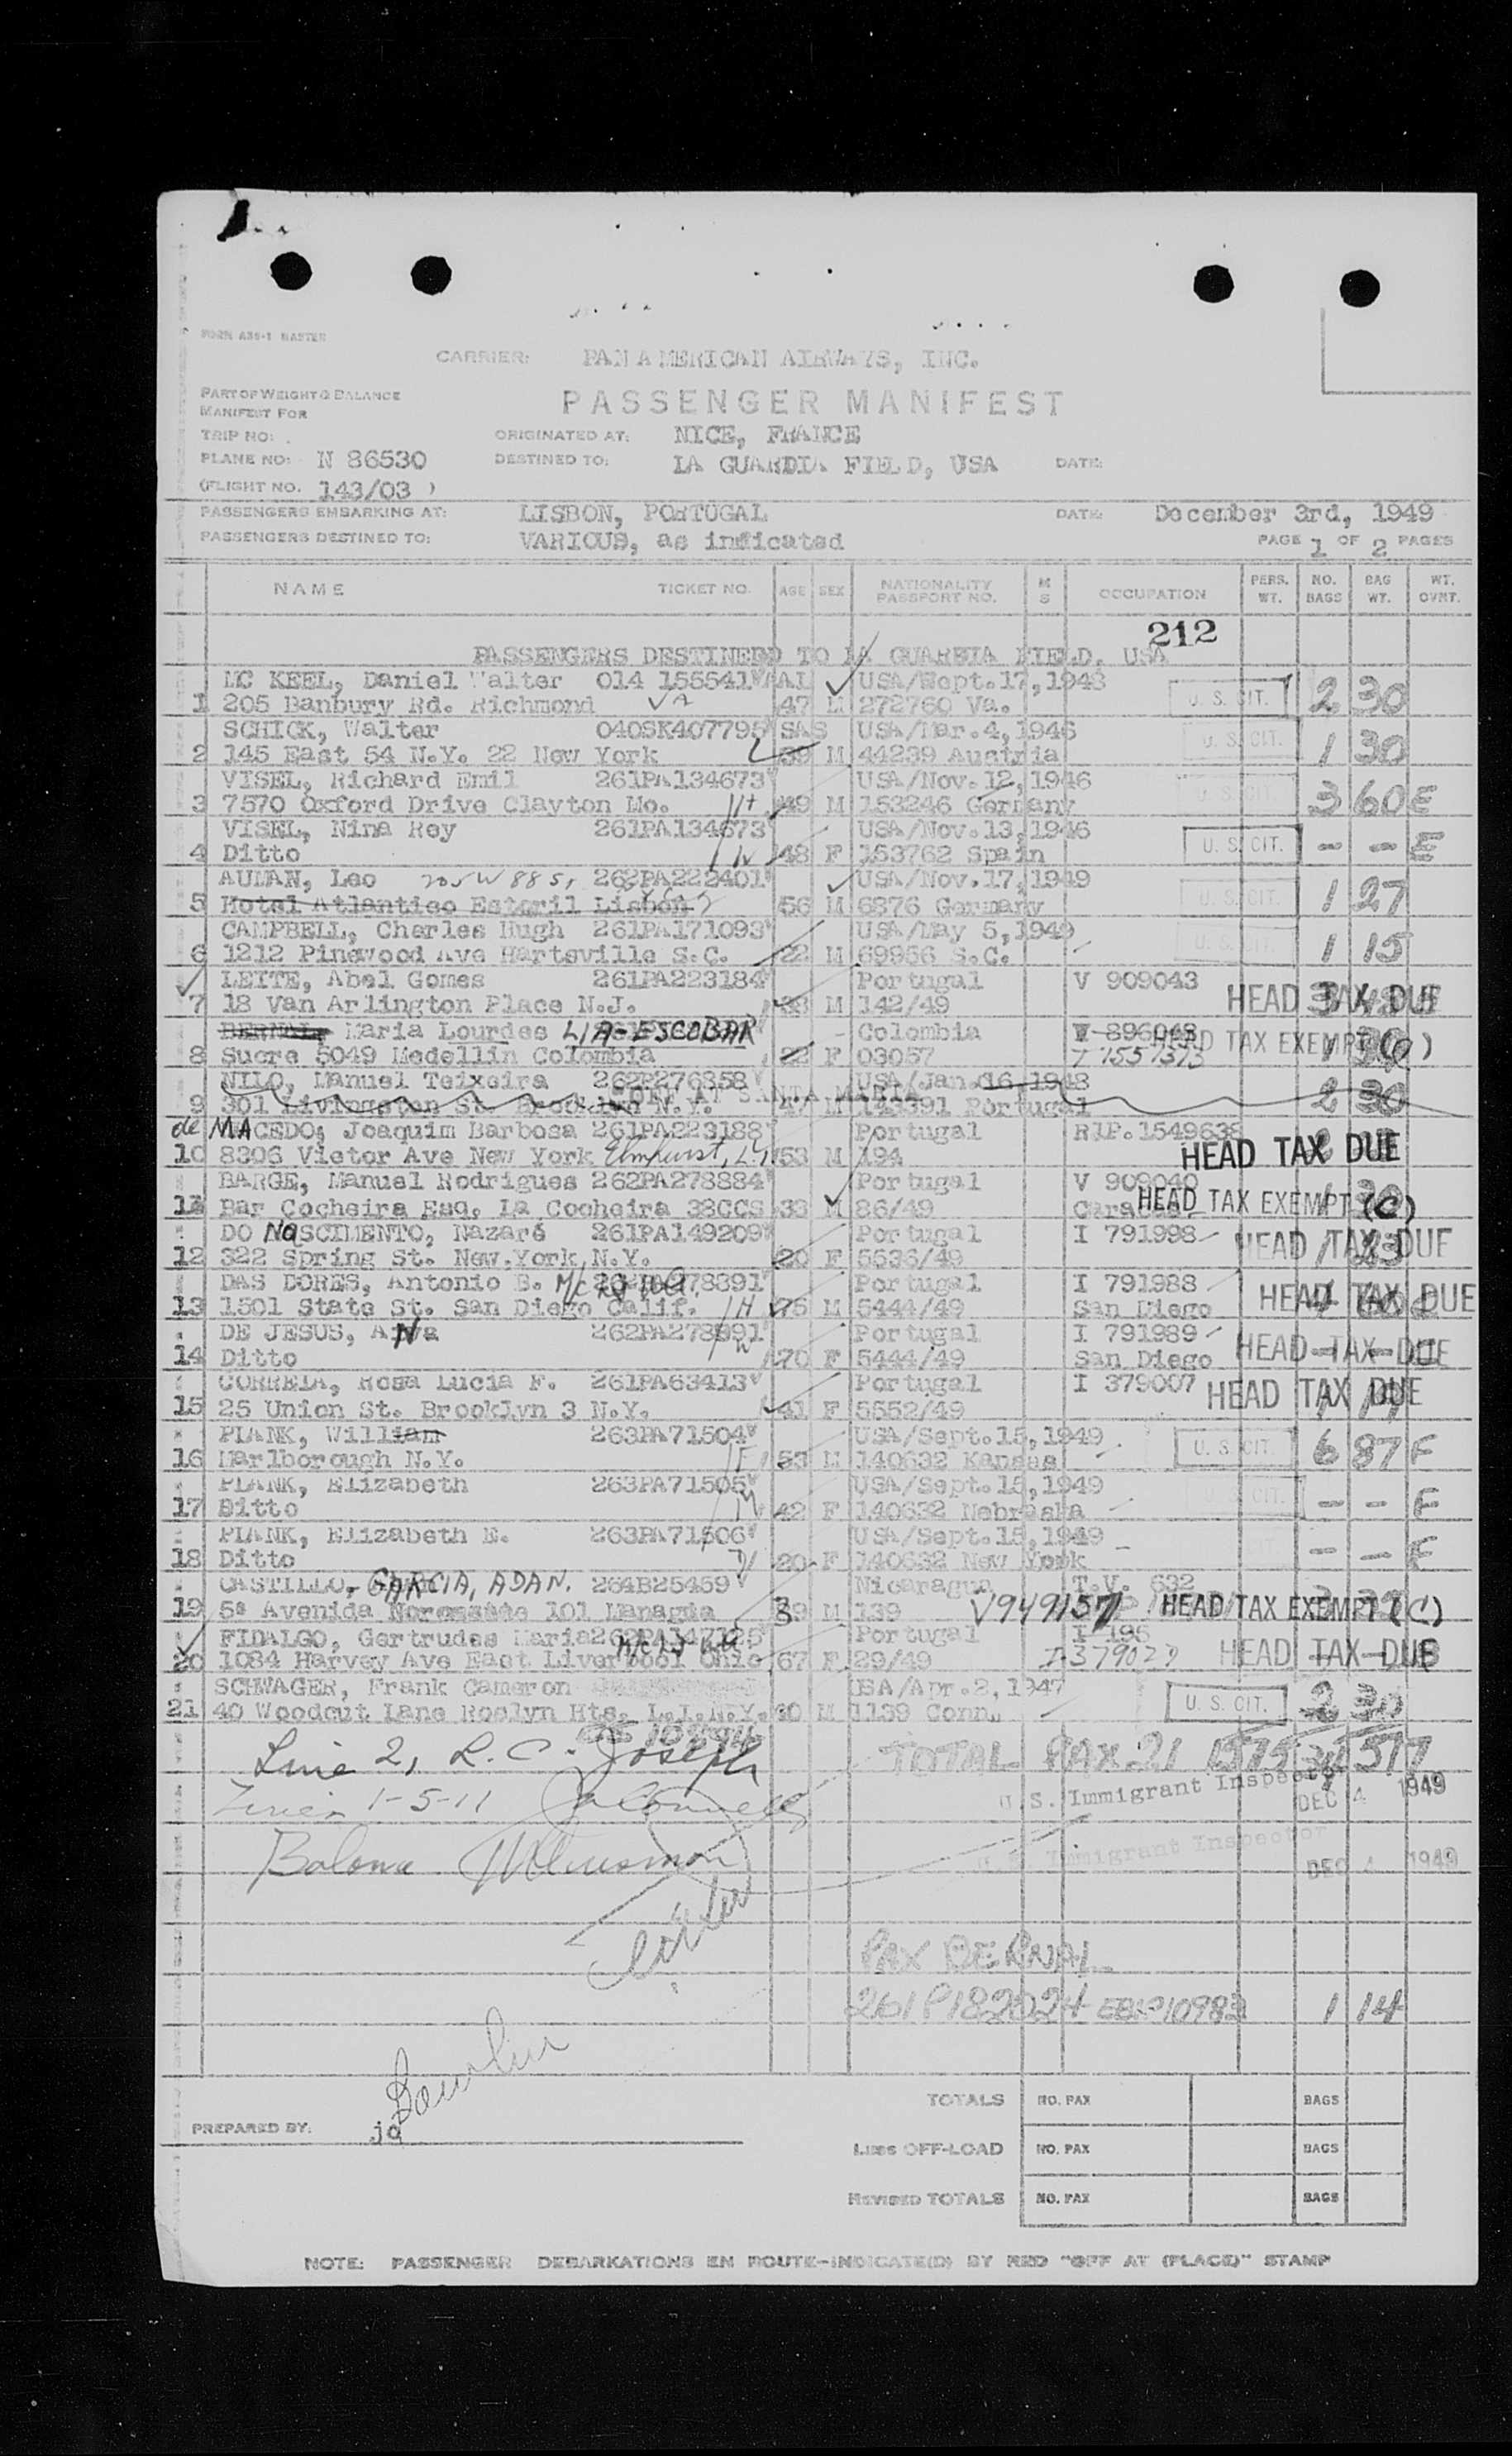 FORM A35-1 MASTER
CARRIER: PAN AMERICAN AIRWAYS, INC.
PART OF WEIGHT & BALANCE
MANIFEST FOR
PASSENGER MANIFEST
TRIP NO: ORIGINATED AT: NICE, FRANCE
PLANE NO: N 86530 DESTINED TO: LA GUARDIA FIELD, USA DATE:
(FLIGHT NO. 143/03 )
PASSENGERS EMBARKING AT: LISBON, PORTUGAL DATE: December 3rd, 1949
PASSENGERS DESTINED TO: VARIOUS, as indicated PAGE 1 OF 2 PAGES
NAME TICKET NO. AGE SEX NATIONALITY PASSPORT NO. M S OCCUPATION PERS. WT. NO. BAGS BAG WT. WT. OVNT.
212
PASSENGERS DESTINEDD TO LA GUARDIA FIELD, USA
MC KEEL, Daniel Walter 014 155541 USA/Sept.17,1948
1 205 Banbury Rd. Richmond VA 47 M 272760 Va. U. S. CIT. 2 30
SCHICK, Walter 040SK407795 SAS USA/Mar.4,1946
2 145 East 54 N.Y. 22 New York 39 M 44239 Austria U. S. CIT. 1 30
VISEL, Richard Emil 261PA134673 USA/Nov.12,1946
3 7570 Oxford Drive Clayton Mo. H 49 M 153246 Germany U. S. CIT. 3 60 E
VISEL, Nina Rey 261PA134673 USA/Nov.13,1946
4 Ditto W 48 F 153762 Spain U. S. CIT. - - E
AUMAN, Leo 205 W 88 St 262PA222401 USA/Nov.17,1949
5 Hotel Atlantico Estoril Lisbon 56 M 6876 Germany U. S. CIT. 1 27
CAMPBELL, Charles Hugh 261PA171093 USA/May 5,1949
6 1212 Pinewood Ave Hartsville S.C. 22 M 69966 S.C. U. S. CIT. 1 15
LEITE, Abel Gomes 261PA223184 Portugal V 909043
7 18 Van Arlington Place N.J. 38 M 142/49 HEAD TAX DUE
BERNAL, Maria Lourdes LIA-ESCOBAR Colombia V 896048
8 Sucre 5049 Medellin Colombia 22 F 03057 HEAD TAX EXEMPT
NILO, Manuel Teixeira 262P276858 USA/Jan.16 1948
OFF AT SANTA MARIA
9 301 Livingston St. Brooklyn N.Y. 47 M 143391 Portugal 2 30
de MACEDO, Joaquim Barbosa 261PA223188 Portugal RIP.1549638
10 8306 Victor Ave New York Elmhurst, L.I. 53 M 194 HEAD TAX DUE
BARGE, Manuel Rodrigues 262PA278884 Portugal V 909040
11 Bar Cocheira Esq. La Cocheira 38CCS 33 M 86/49 Caracas HEAD TAX EXEMPT (C)
DO NaSCIMENTO, Nazaré 261PA149209 Portugal I 791998
12 322 Spring St. New.York N.Y. 20 F 5536/49 HEAD TAX DUE
DAS DORES, Antonio B. 262PA278891 Portugal I 791988
13 1501 State St. San Diego Calif. H 75 M 5444/49 San Diego HEAD TAX DUE
DE JESUS, ANNa 262PA278891 Portugal I 791989
14 Ditto W 70 F 5444/49 San Diego HEAD TAX DUE
CORREIA, Rosa Lucia F. 261PA63413 Portugal I 379007
15 25 Union St. Brooklyn 3 N.Y. 41 F 5552/49 HEAD TAX DUE
PLANK, William 263PA71504 USA/Sept.15,1949
16 Marlborough N.Y. F 53 M 140632 Kansas U. S. CIT. 6 87 F
PLANK, Elizabeth 263PA71505 USA/Sept.15,1949
17 Ditto M 42 F 140632 Nebraska U. S. CIT. - - F
PLANK, Elizabeth E. 263PA71506 USA/Sept.15,1949
18 Ditto D 20 F 140632 New York CIT. - - F
CASTILLO, GARCIA, ADAN. 264B25459 Nicaragua T.V. 632
19 5ª Avenida Noroeste 101 Managua 39 M 139 V949157 HEAD TAX EXEMPT (C)
FIDALGO, Gertrudes Maria 262PA147125 Portugal I 195
20 1084 Harvey Ave East Liverpool Ohio 67 F 29/49 I-379027 HEAD TAX DUE
SCHWAGER, Frank Cameron USA/Apr.2,1947
21 40 Woodcut Lane Roslyn Hts. L.I.N.Y. 30 M 1139 Conn. U. S. CIT. 2 30
Line 2, R. C. Joseph TOTAL PAX 21
Lines 1-5-11 U. S. Immigrant Inspector DEC 4 1949
Balance U. S. Immigrant Inspector DEC 4 1949
PAX BERNAL
261P182024 1 14
PREPARED BY: ja
TOTALS NO. PAX BAGS
LESS OFF-LOAD NO. PAX BAGS
REVISED TOTALS NO. PAX BAGS
NOTE: PASSENGER DEBARKATIONS EN ROUTE-INDICATE(D) BY RED "OFF AT (PLACE)" STAMP